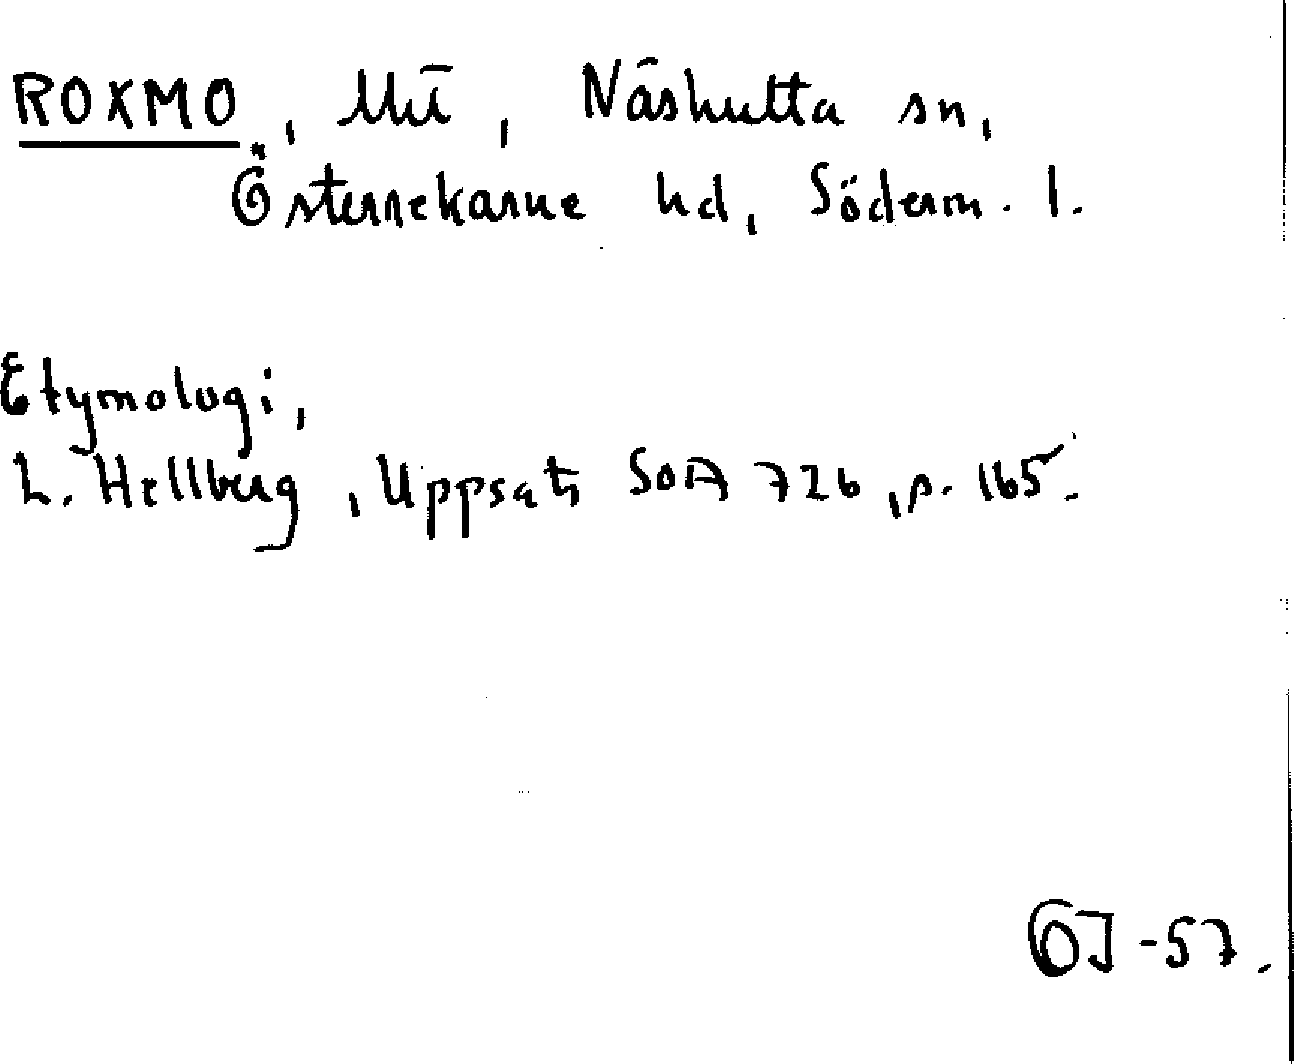 ROXMO, Näshulta sn,
Österrekarne hd, Söderm. l.
Etymologi,
L. Hellberg, Uppsats SOA 726, s. 165.
-57.